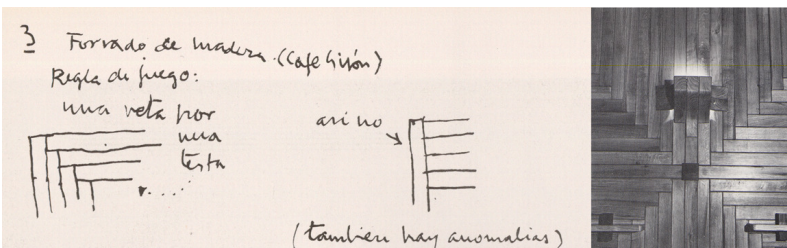 3 Forrado de madera. (Café Gijón)
Regla de juego:
una veta por
una
testa
así no
(también hay anomalías)